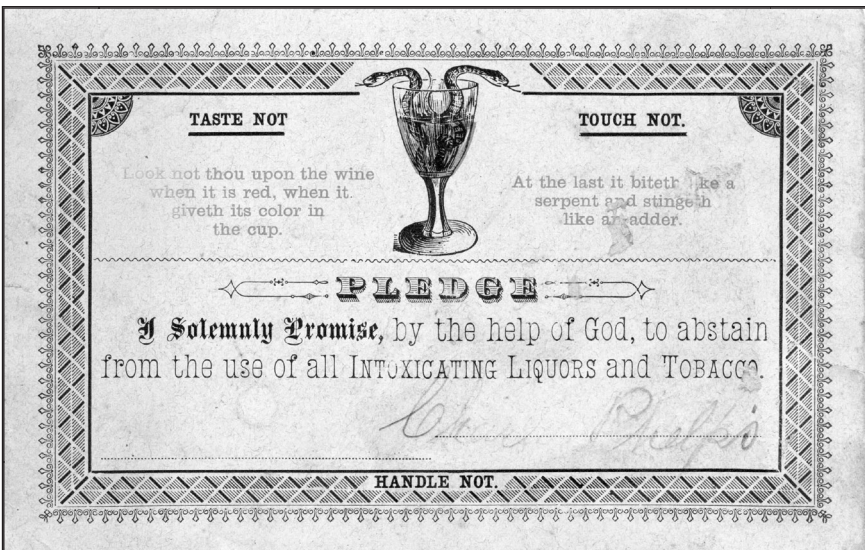 TASTE NOT
TOUCH NOT.
Look not thou upon the wine
when it is red, when it
giveth its color in
the cup.
At the last it biteth like a
serpent and stingeth
like an adder.
PLEDGE
I Solemnly Promise, by the help of God, to abstain
from the use of all INTOXICATING LIQUORS and TOBACCO.
Phelps
HANDLE NOT.